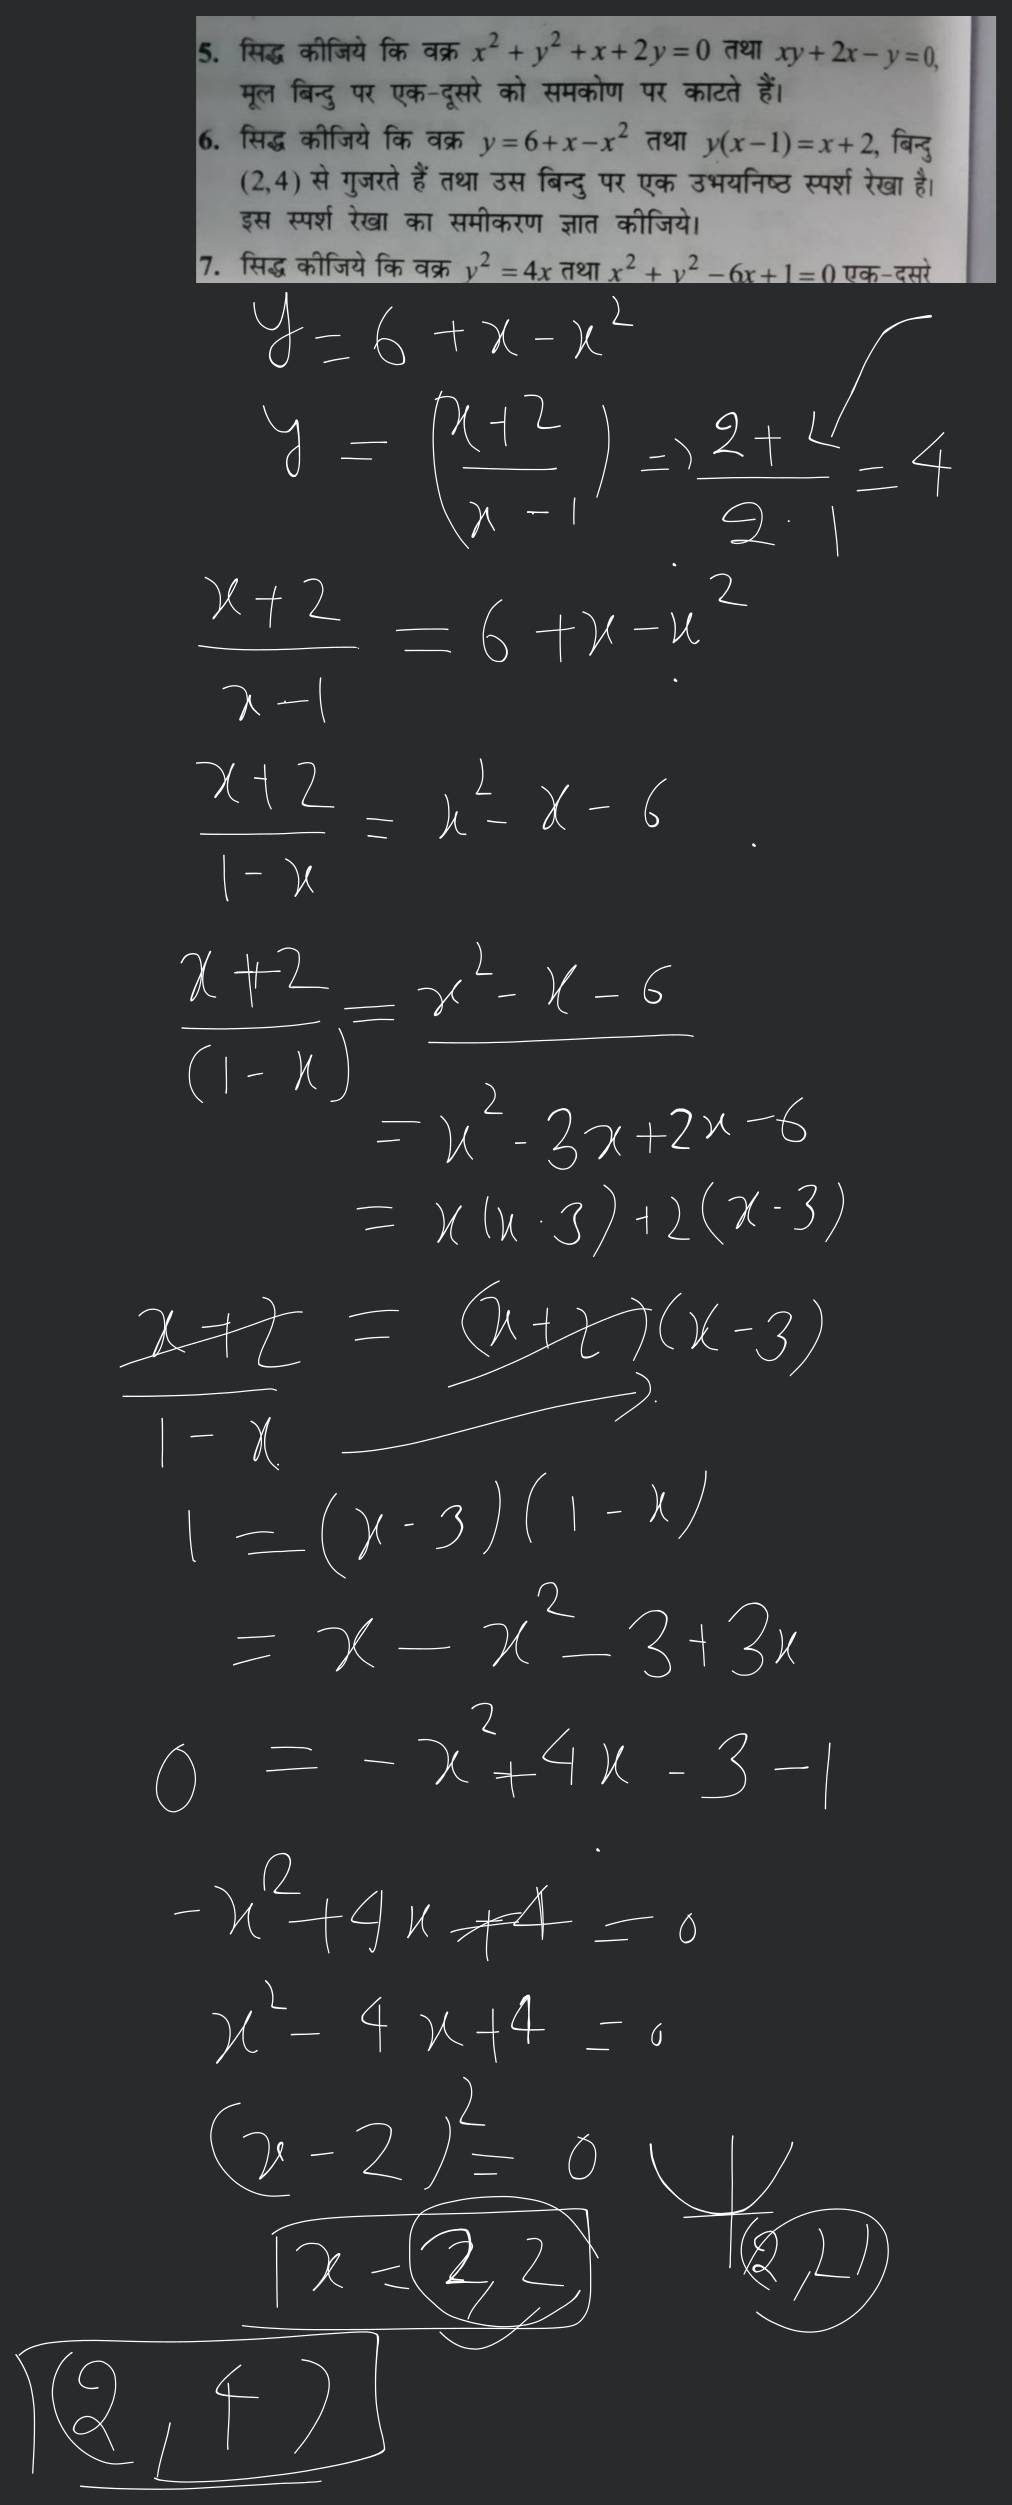 5. सिद्ध कीजिये कि वक्र x² + y² + x + 2y = 0 तथा xy + 2x − y = 0,
मूल बिन्दु पर एक-दूसरे को समकोण पर काटते हैं।
6. सिद्ध कीजिये कि वक्र y = 6 + x − x² तथा y(x − 1) = x + 2, बिन्दु
(2, 4) से गुजरते हैं तथा उस बिन्दु पर एक उभयनिष्ठ स्पर्श रेखा है।
इस स्पर्श रेखा का समीकरण ज्ञात कीजिये।
7. सिद्ध कीजिये कि वक्र y² = 4x तथा x² + y² − 6x + 1 = 0 एक-दूसरे
y = 6 + x − x²
y = ((x+2)/(x−1)) ⇒ (2+2)/(2-1) = 4
(x+2)/(x−1) = 6 + x − x²
(x+2)/(1−x) = x² − x − 6
(x+2)/(1−x) = x² − x − 6
= x² - 3x + 2x − 6
= x(x-3) + 2(x-3)
(x+2)/(1−x) = (x+2)(x−3)
1 = (x-3)(1−x)
= x − x² − 3 + 3x
0 = − x² + 4x − 3 − 1
−x² + 4x + 4 = 0
x² − 4x + 4 = 0
(x − 2)² = 0
x = 2, 2 (2, 2)
(2, 4)